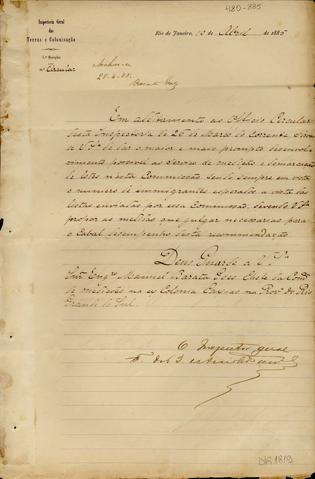 480-885
Inspectoria Geral
das
Terras e Colonisação
Rio de Janeiro, 10 de Abril de 1885
1ª Secção
Circular
Em additamento ao Officio Circular
desta Inspectoria de 26 de Março do corrente,
V.Sª de dar o maior e mais prompto desenvol
vimento possivel ao serviço de medição e demarcação
de lotes nesta Commissão tendo sempre em vista
o numero de immigrantes esperado a vista das
listas enviadas por essa Commissão, devendo V.Sª
propor as medidas que julgar necessarias para
o cabal desempenho desta recommendação.
Deus Guarde a V.Sª
Snr. Engº Manuel Barata Góes Chefe da Comm.
de medições na ex Colonia Caxias na Prov. do Rio
Grande do Sul.
O Inspector geral
DIG 1819